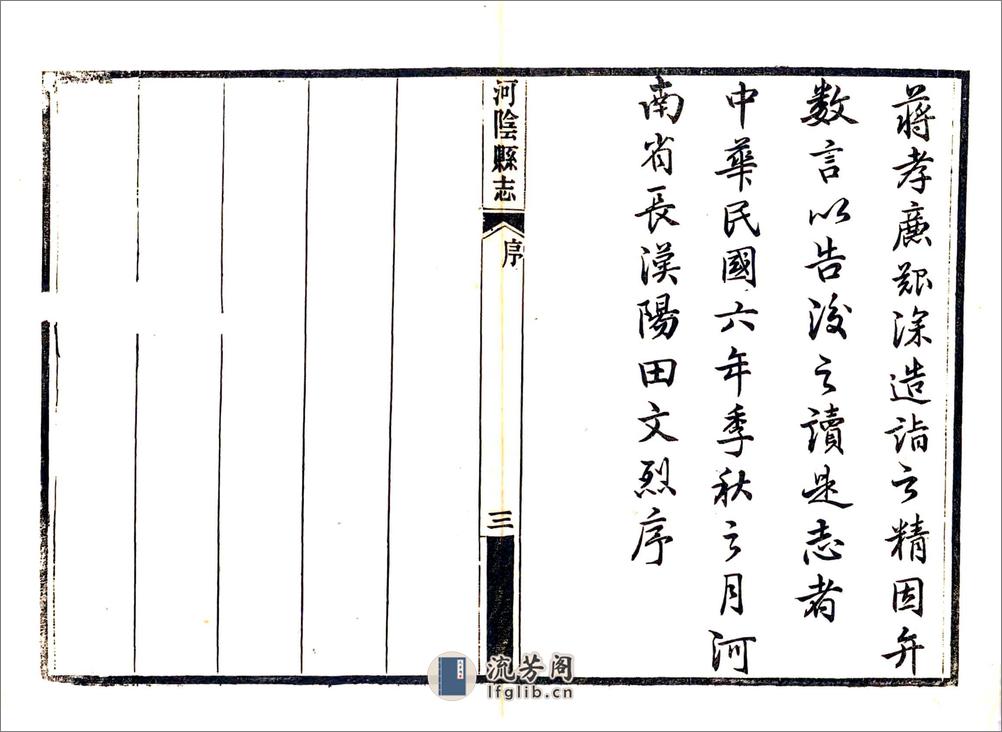 蔣孝廉艱深造詣之精因弁
數言以告後之讀是志者
中華民國六年季秋之月河
南省長漢陽田文烈序
河陰縣志
序
三
流芳阁
lfglib.cn